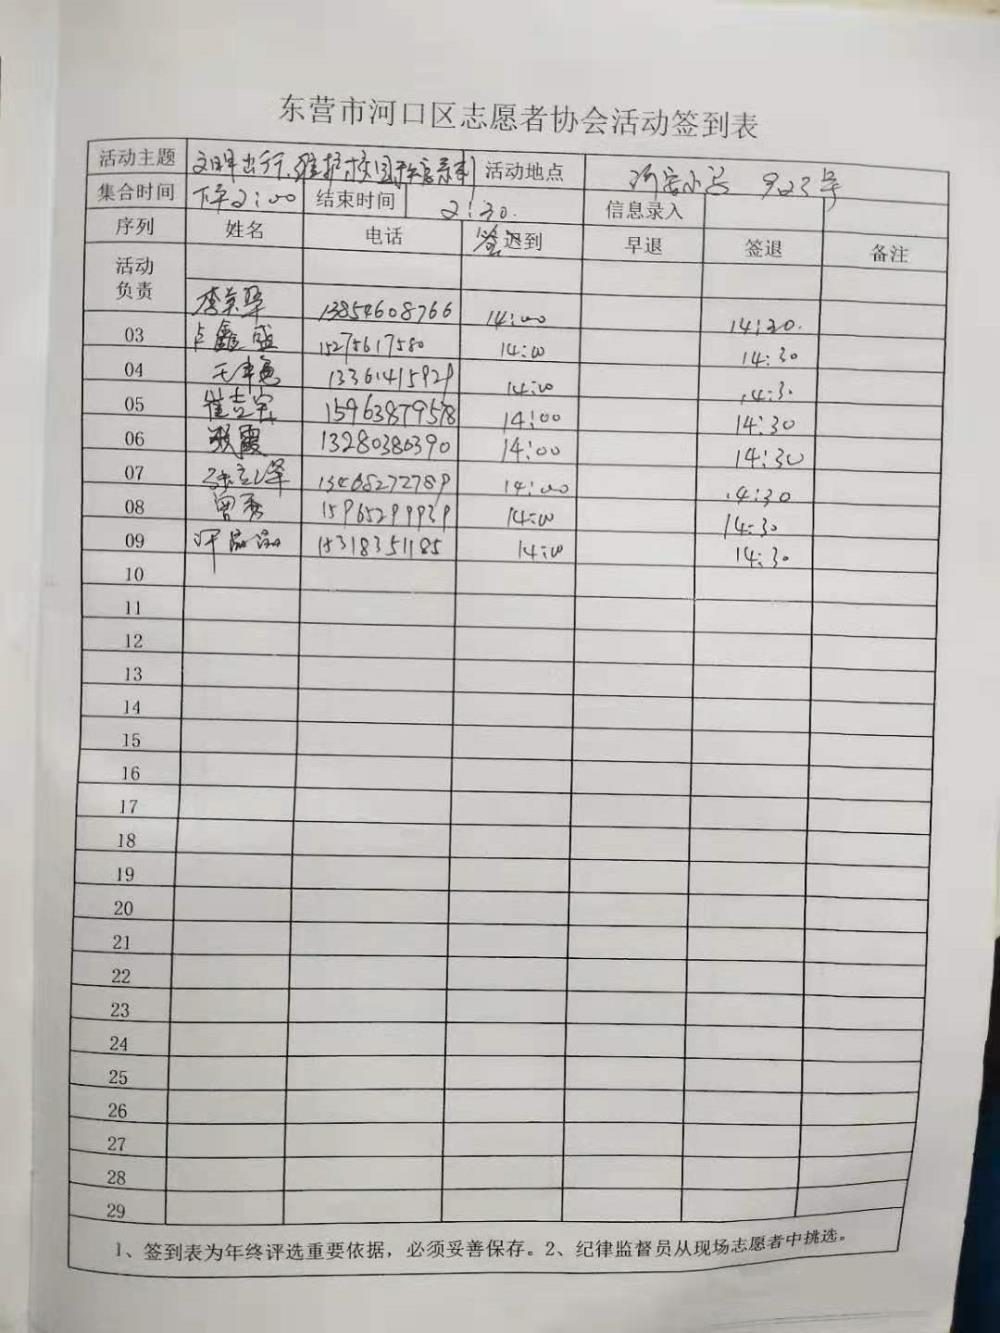 东营市河口区志愿者协会活动签到表
活动主题 文明出行、维护校园 活动地点 河安小学 923号
集合时间 下午2:00 结束时间 2:30. 信息录入
序列 姓名 电话 签迟到 早退 签退 备注
活动
负责
李英华 13854608766 14:00 14:30.
03 卢鑫盛 15275617580 14:00 14:30
04 13361415929 14:00 14:30
05 崔吉宝 15963879578 14:00 14:30
06 张霞 13280380390 14:00 14:30
07 13468272789 14:00 14:30
08 曾秀 15965299939 14:00 14:30
09 15318351185 14:00 14:30
10
11
12
13
14
15
16
17
18
19
20
21
22
23
24
25
26
27
28
29
1、签到表为年终评选重要依据，必须妥善保存。2、纪律监督员从现场志愿者中挑选。